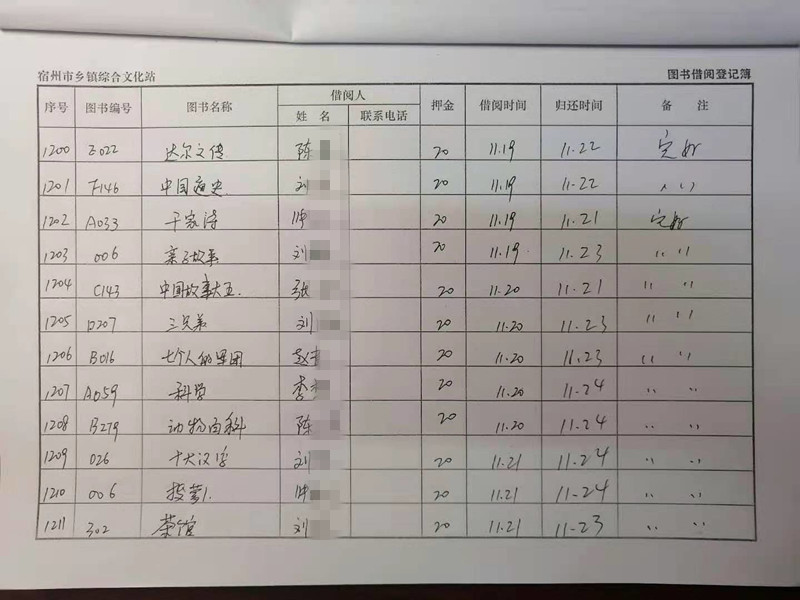 宿州市乡镇综合文化站 图书借阅登记簿
序号 图书编号 图书名称 借阅人 押金 借阅时间 归还时间 备 注
姓 名 联系电话
1200 Z022 达尔文传 陈 20 11.19 11.22 完好
1201 F146 中国通史 刘 20 11.19 11.22 〃
1202 A033 千家诗 20 11.19 11.21 完好
1203 006 亲子故事 刘 20 11.19 11.23 〃
1204 C143 中国故事大王 张 20 11.20 11.21 〃
1205 D207 三兄弟 刘 20 11.20 11.23 〃
1206 B016 七个人的军团 赵 20 11.20 11.23 〃
1207 A059 科学 李 20 11.20 11.24 〃
1208 B279 动物百科 陈 20 11.20 11.24 〃
1209 026 十大汉字 刘 20 11.21 11.24 〃
1210 006 20 11.21 11.24 〃
1211 302 茶馆 刘 20 11.21 11.23 〃